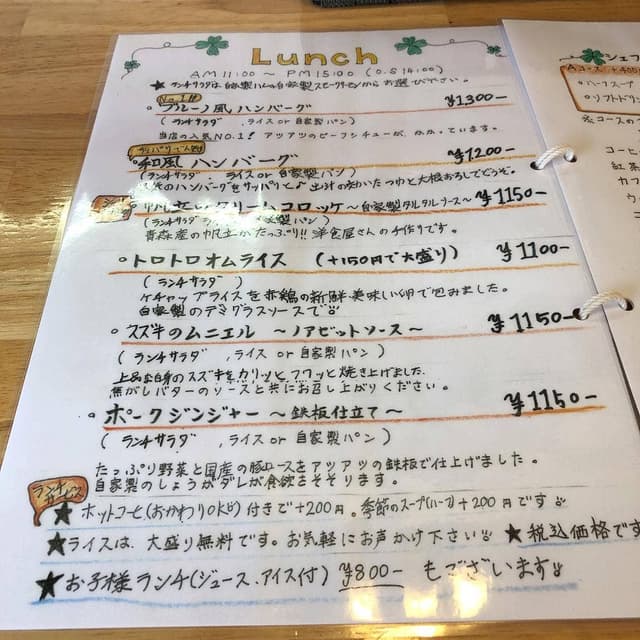 Lunch
AM 11:00 ~ PM 15:00 (O.S 14:00)
★ ランチサラダは 自家製ハムor自家製スモークサーモンからお選び下さい。
No.1!!
・ブルーノ風ハンバーグ ¥1300-
(ランチサラダ 、ライス or 自家製パン)
当店の人気NO.1! アツアツのビーフシチューが、かかっています。
・和風 ハンバーグ ¥1200-
(ランチサラダ 、ライス or 自家製パン)
のハンバーグをサッパリと♪ 出汁の効いたつゆと大根おろしでどうぞ。
クリームコロッケ~自家製タルタルソース~ ¥1150-
(ランチサラダ 製パン)
青森産の帆立がたっぷり!! 洋食屋さんの手作りです。
・トロトロオムライス (+150円で大盛り) ¥1100-
(ランチサラダ)
ケチャップライスを赤鶏の新鮮美味しい卵で包みました。
自家製のデミグラスソースで
・スズキのムニエル ~ノアゼットソース~ ¥1150-
(ランチサラダ 、ライス or 自家製パン)
上品な白身のスズキをカリッと、フワッと焼き上げました。
焦がしバターのソースと共にお召し上がりください。
・ポークジンジャー ~鉄板仕立て~ ¥1150-
(ランチサラダ 、ライス or 自家製パン)
たっぷり野菜と国産の豚ロースをアツアツの鉄板で仕上げました。
自家製のしょうがダレが食欲をそそります。
ランチサービス
★ ホットコーヒー(おかわりOK!!) 付きで+200円。季節のスープ(ハーフ)+200円です
★ライスは、大盛り無料です。お気軽にお声かけ下さい ★税込価格です
★お子様ランチ(ジュース、アイス付) ¥800- もございます
シェフ
Aコース +400
・ハーフスープ
・ソフトドリン
コースの
コーヒ
紅茶
カフ
ウ